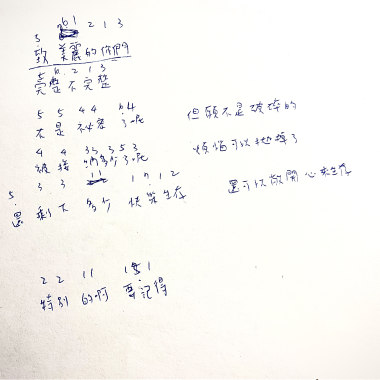 5 61 2 1 3
致 美麗的你們
5 6 2 1 3
完整不完整
5 5 4 4 64
不是 不必 了呢 但願不是破碎的
4 4 35 3 5 3
被 多少了呢 煩惱可以拋掉了
3 3 11 1 7 1 2
5 還 剩下 多少 快樂生存 還可以敞開心來生存
2 2 11 1 5 1
特別 的啊 要記得